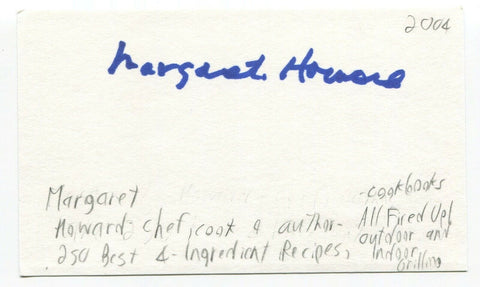 2004
Margaret Howard
Margaret
Howard - chef, cook & author -
250 Best 4-Ingredient Recipes,
- cookbooks
All Fired Up!
outdoor and
Indoor
Grilling